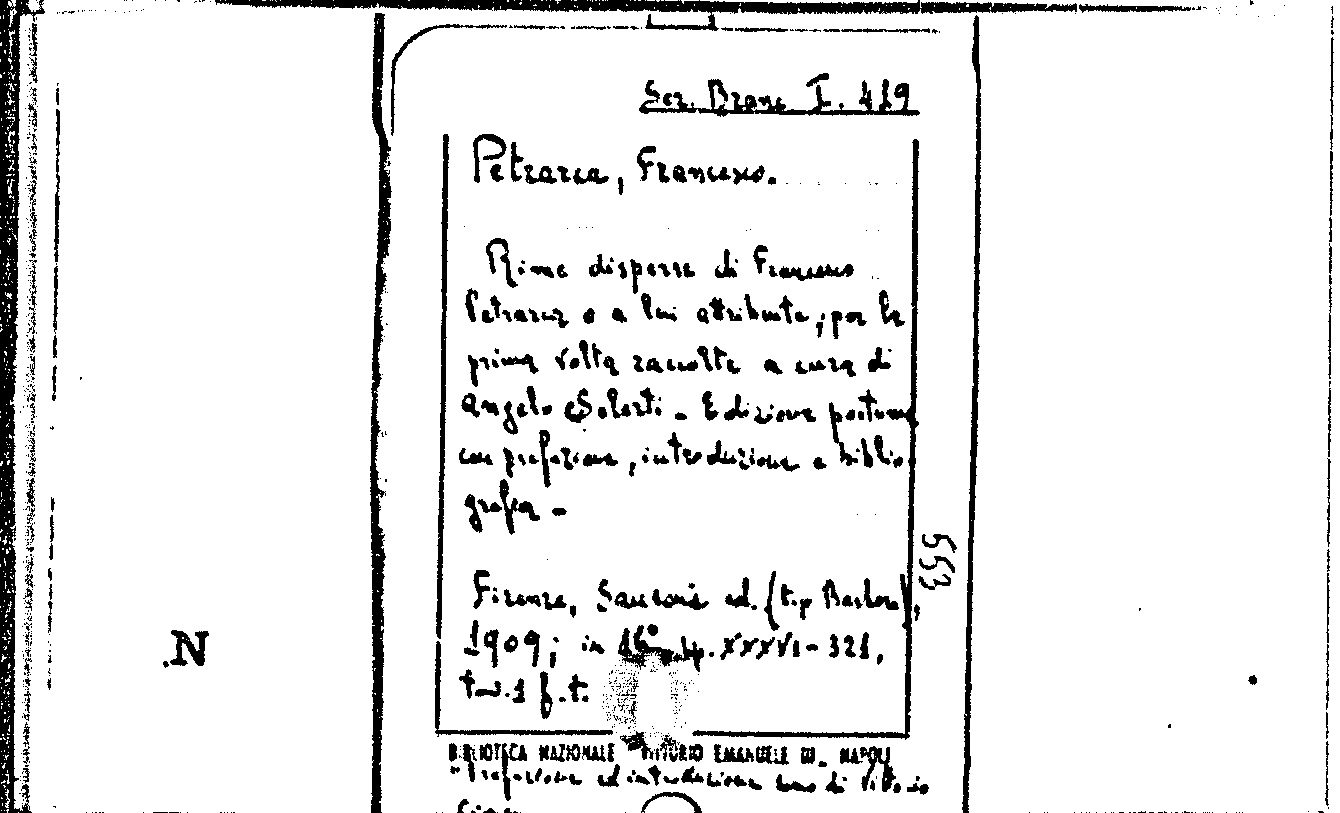 Sez. Branc I. 419
Petrarca, Francesco.
Rime disperse di Francesco
Petrarca o a lui attribuite, per la
prima volta raccolte a cura di
Angelo Solerti - Edizione postuma
con prefazione, introduzione e biblio-
grafia -
Firenze, Sansoni ed. (tip Barbera),
1909; in 16° pp. XXXVI-321,
tav. 1 f.t.
553
N
BIBLIOTECA NAZIONALE VITTORIO EMANUELE III - NAPOLI
Prefazione ed introduzione sono di Vittorio
Cian